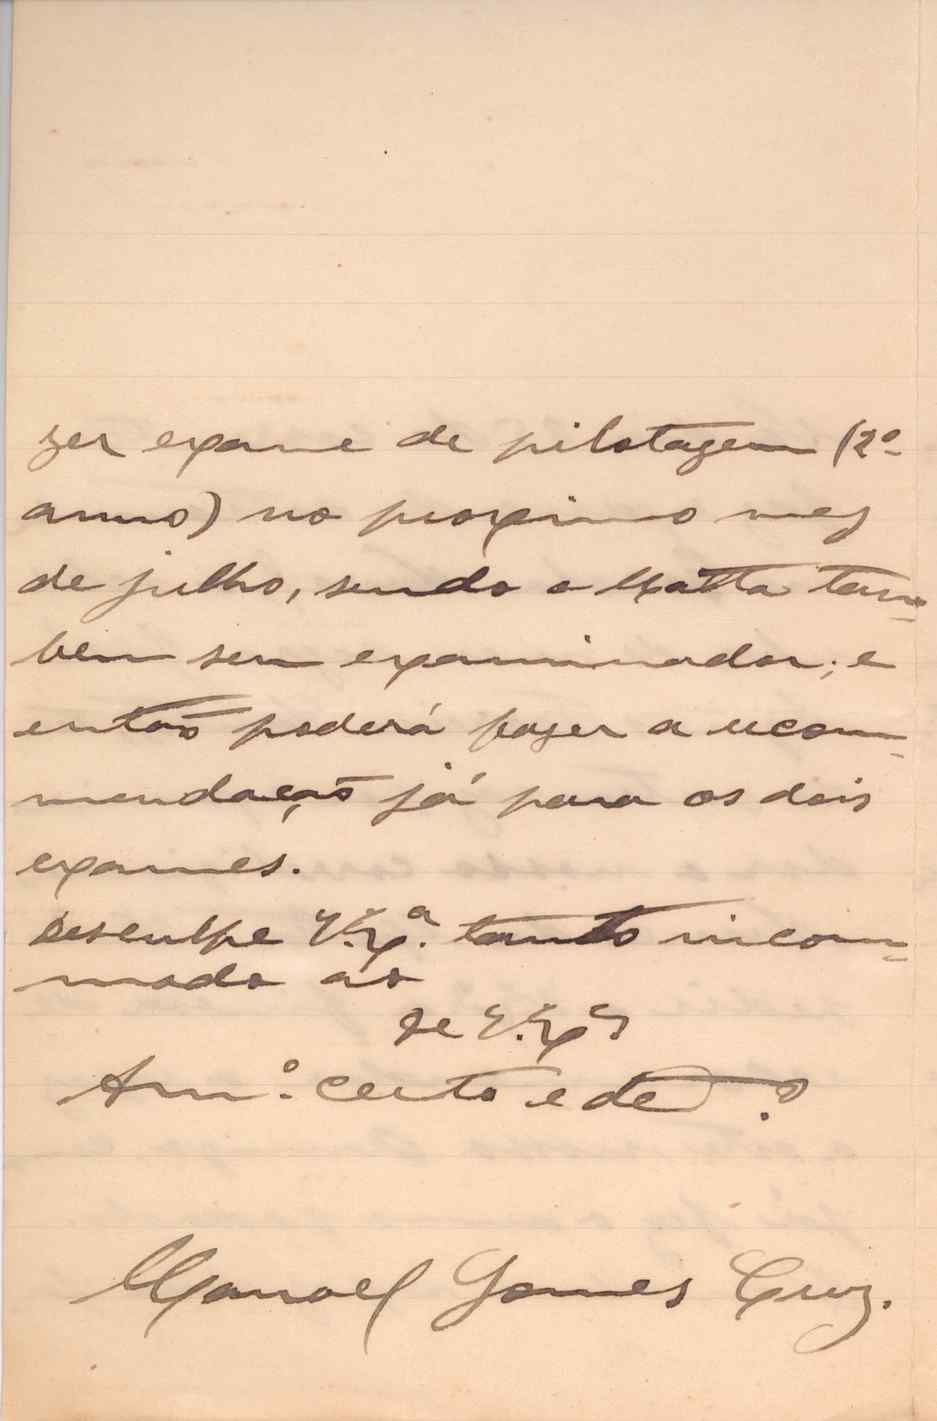 zer exame de pilotagem (2º
anno) no proximo mez
de julho, sendo o Matta tam-
bem seu examinador; e
então poderá fazer a recom-
mendação já para os dois
exames.
Desculpe V. Exª. tanto incom-
modo ao
De V. Exª
Amº. certo e
Manoel Gomes Cruz.